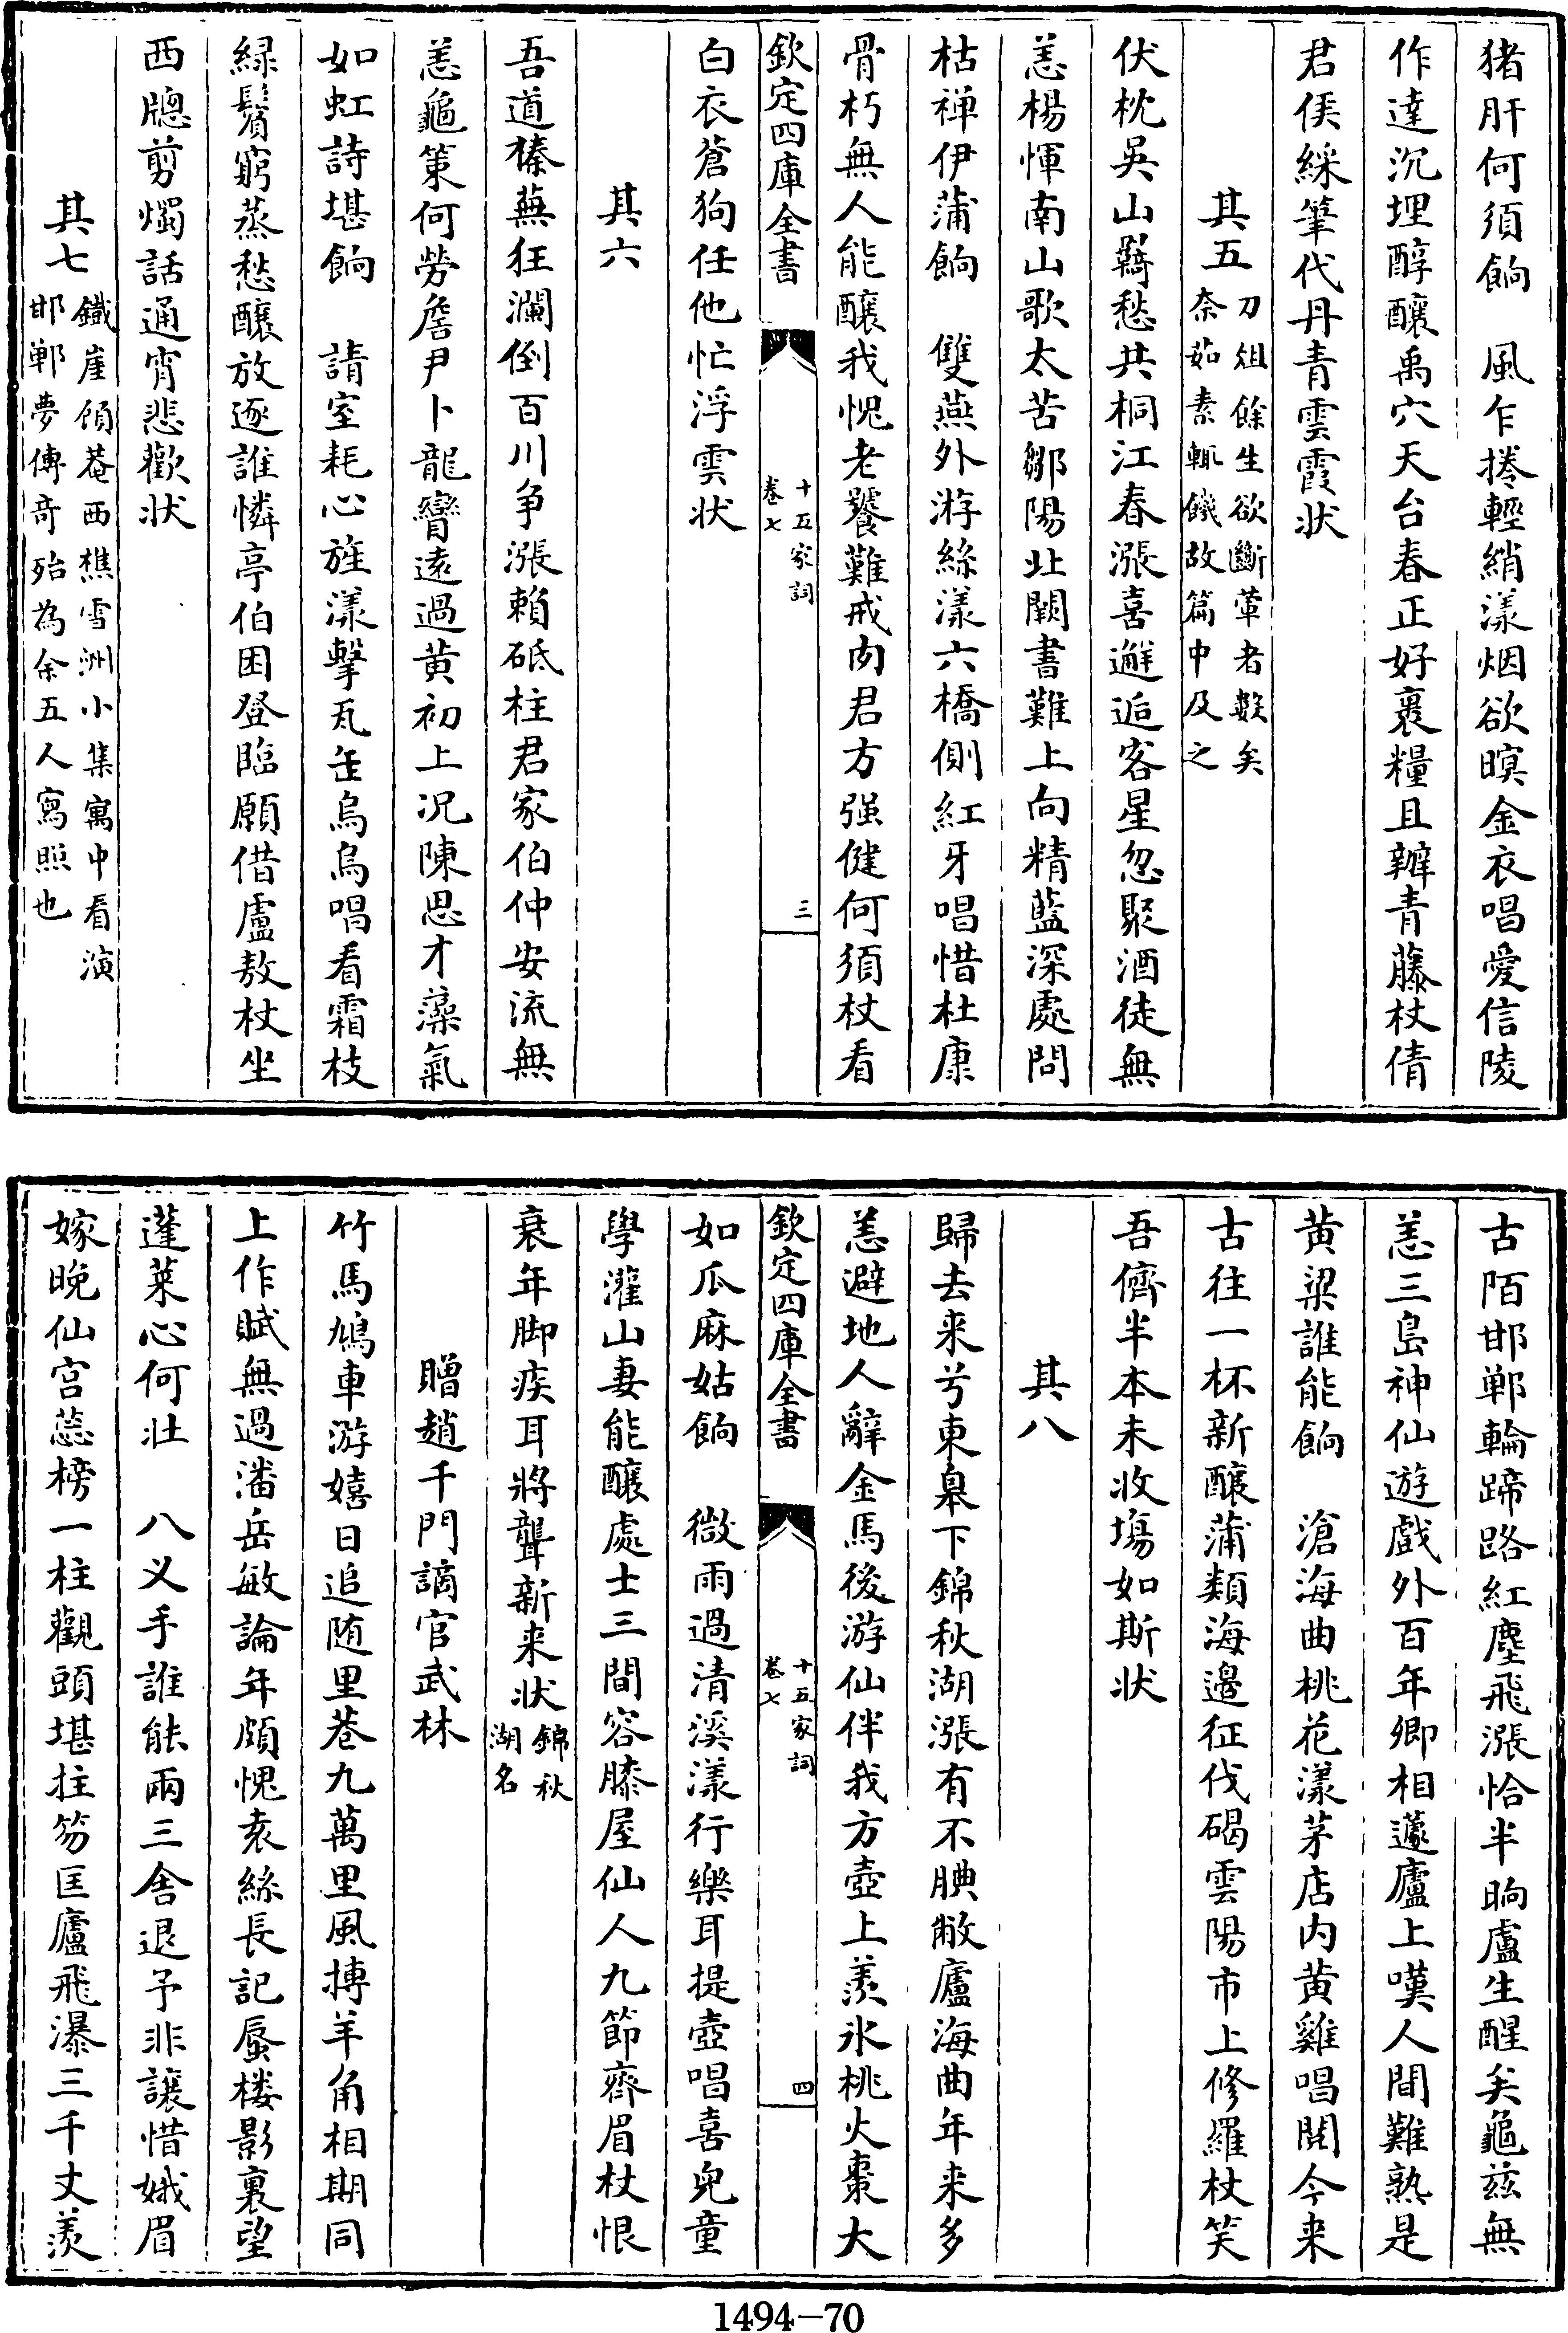 猪肝何須餉　風乍捲輕綃漾烟欲暝金衣唱愛信陵
作達沉埋醇釀禹穴天台春正好裹糧且辦青藤杖倩
君侯綵筆代丹青雲霞狀
其五刀俎餘生欲斷葷者數矣
奈茹素輒饑故篇中及之
伏枕吳山羇愁共桐江春漲喜邂逅客星忽聚酒徒無
恙楊惲南山歌太苦鄒陽北闕書難上向精藍深處問
枯禪伊蒲餉　雙燕外游絲漾六橋側紅牙唱惜杜康
骨朽無人能釀我愧老饕難戒肉君方强健何須杖看
欽定四庫全書
十五家詞
卷七
三
白衣蒼狗任他忙浮雲狀
其六
吾道榛蕪狂瀾倒百川争漲賴砥柱君家伯仲安流無
恙龜策何勞詹尹卜龍鸞遠過黄初上况陳思才藻氣
如虹詩堪餉　請室耗心旌漾擊瓦缶烏烏唱看霜枝
緑鬢窮蒸愁釀放逐誰憐亭伯困登臨願借盧敖杖坐
西牕剪燭話通宵悲歡狀
其七鐵崖傾菴西樵雪洲小集寓中看演
邯鄲夢傳竒殆為余五人寫照也
古陌邯鄲輪蹄路紅塵飛漲恰半晌盧生醒矣龜兹無
恙三島神仙遊戲外百年卿相蘧廬上嘆人間難熟是
黄粱誰能餉　滄海曲桃花漾茅店内黄雞唱閲今来
古往一杯新釀蒲類海邊征伐碣雲陽市上修羅杖笑
吾儕半本未收塲如斯狀
其八
歸去来兮東臯下錦秋湖漲有不腆敝廬海曲年来多
恙避地人辭金馬後游仙伴我方壺上羨氷桃火棗大
欽定四庫全書
十五家詞
卷七
四
如瓜麻姑餉　微雨過清溪漾行樂耳提壺唱喜兒童
學灌山妻能釀處士三間容膝屋仙人九節齊眉杖恨
衰年脚疾耳將聾新来狀錦秋
湖名
贈趙千門謫官武林
竹馬鳩車游嬉日追随里巷九萬里風摶羊角相期同
上作賦無過潘岳敏論年頗愧袁絲長記蜃楼影裏望
蓬萊心何壯　八义手誰能兩三舍退予非讓惜娥眉
嫁晚仙宫蕊榜一柱觀頭堪拄笏匡廬飛瀑三千丈羨
1494－70